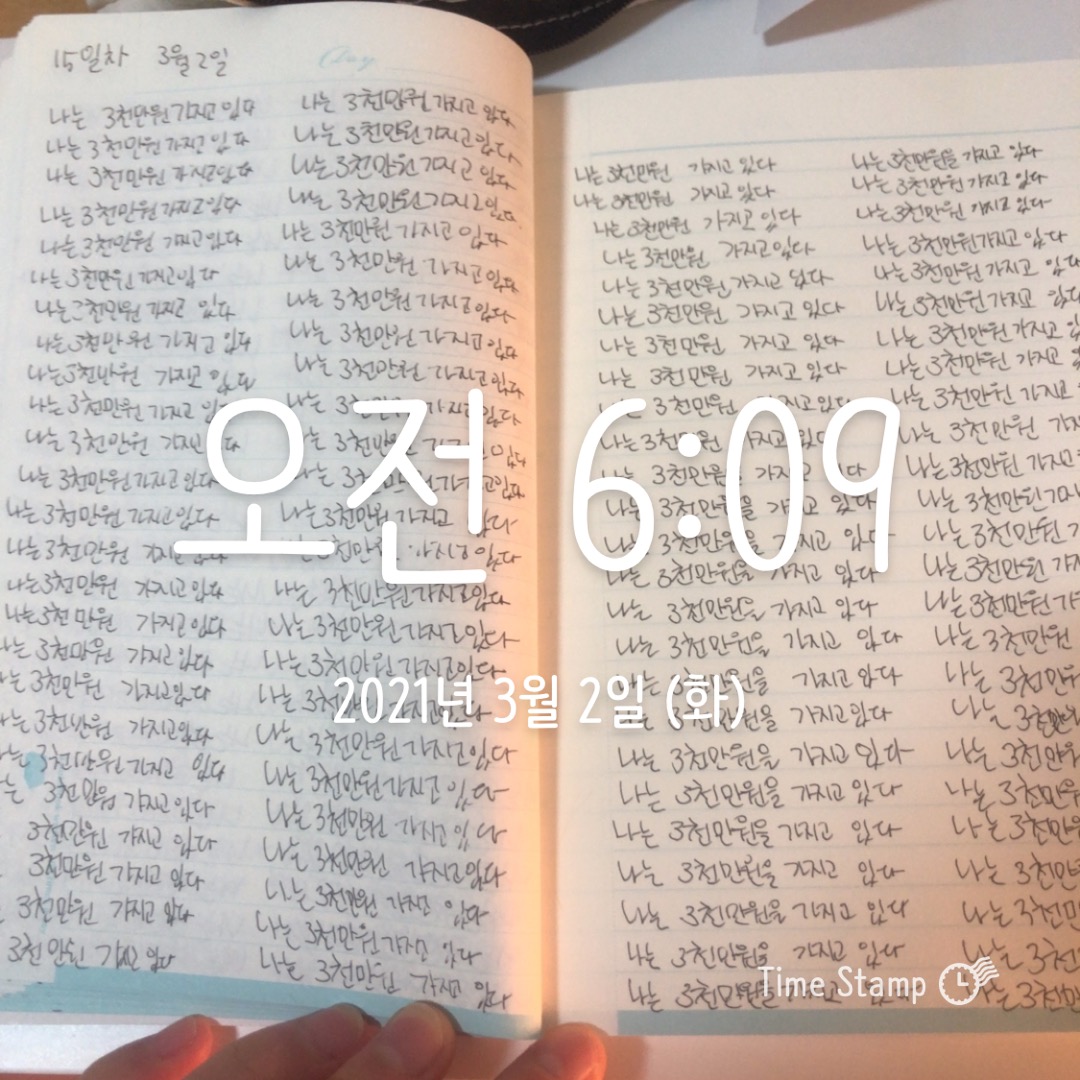 15일차 3월 2일
Day
나는 3천만원 가지고 있다
나는 3천만원 가지고 있다
나는 3천만원 가지고 있다
나는 3천만원 가지고 있다
나는 3천만원 가지고 있다
나는 3천만원 가지고 있다
나는 3천만원 가지고 있다
나는 3천만원 가지고 있다
나는 3천만원 가지고 있다
나는 3천만원 가지고 있다
나는 3천만원 가지고 있다
나는 3천만원 가지고 있다
나는 3천만원 가지고 있다
나는 3천만원 가지고 있다
나는 3천만원 가지고 있다
나는 3천만원 가지고 있다
나는 3천만원 가지고 있다
나는 3천만원 가지고 있다
나는 3천만원 가지고 있다
나는 3천만원 가지고 있다
는 3천만원 가지고 있다
3천만원 가지고 있다
3천만원 가지고 있다
3천만원 가지고 있다
3천만원 가지고 있다
나는 3천만원 가지고 있다
나는 3천만원 가지고 있다
나는 3천만원 가지고 있다
나는 3천만원 가지고 있다
나는 3천만원 가지고 있다
나는 3천만원 가지고 있다
나는 3천만원 가지고 있다
나는 3천만원 가지고 있다
나는 3천만원 가지고 있다
나는 3천만원 가지고 있다
나는 3천만원 가지고 있다
나는 3천만원 가지고 있다
나는 3천만원 가지고 있다
나는 3천만원 가지고 있다
나는 3천만원 가지고 있다
나는 3천만원 가지고 있다
나는 3천만원 가지고 있다
나는 3천만원 가지고 있다
나는 3천만원 가지고 있다
나는 3천만원 가지고 있다
나는 3천만원 가지고 있다
나는 3천만원 가지고 있다
나는 3천만원 가지고 있다
나는 3천만원 가지고 있다
나는 3천만원 가지고 있다
나는 3천만원 가지고 있다
나는 3천만원 가지고 있다
나는 3천만원 가지고 있다
나는 3천만원 가지고 있다
나는 3천만원 가지고 있다
나는 3천만원 가지고 있다
나는 3천만원 가지고 있다
나는 3천만원 가지고 있다
나는 3천만원 가지고 있다
나는 3천만원 가지고 있다
나는 3천만원 가지고 있다
나는 3천만원을 가지고 있다
나는 3천만원을 가지고 있다
나는 3천만원을 가지고 있다
나는 3천만원을 가지고 있다
나는 3천만원을 가지고 있다
나는 3천만원을 가지고 있다
나는 3천만원을 가지고 있다
나는 3천만원을 가지고 있다
나는 3천만원을 가지고 있다
나는 3천만원을 가지고 있다
나는 3천만원을 가지고 있다
나는 3천만원을 가지고 있다
나는 3천만원을 가지고 있다
나는 3천만원을 가지고 있다
나는 3천만원을 가지고 있다
나는 3천만원을 가지고 있다
나는 3천만원 가지고 있다
나는 3천만원 가지고 있다
나는 3천만원 가지고 있다
나는 3천만원 가지고 있다
나는 3천만원 가지고 있다
나는 3천만원 가지고
나는 3천만원 가지고
나는 3천만원 가지
나는 3천만원 가지고
나는 3천만원 가지
나는 3천만원 가
나는 3천만원 가
나는 3천만원 가
나는 3천만원
나는 3천만원
나는 3천만원
나는 3천만원
나는 3천만원
나는 3천만원
나는 3천만원
나는 3천만
나는 3천만
나는 3천만
오전 6:09
2021년 3월 2일 (화)
Time Stamp